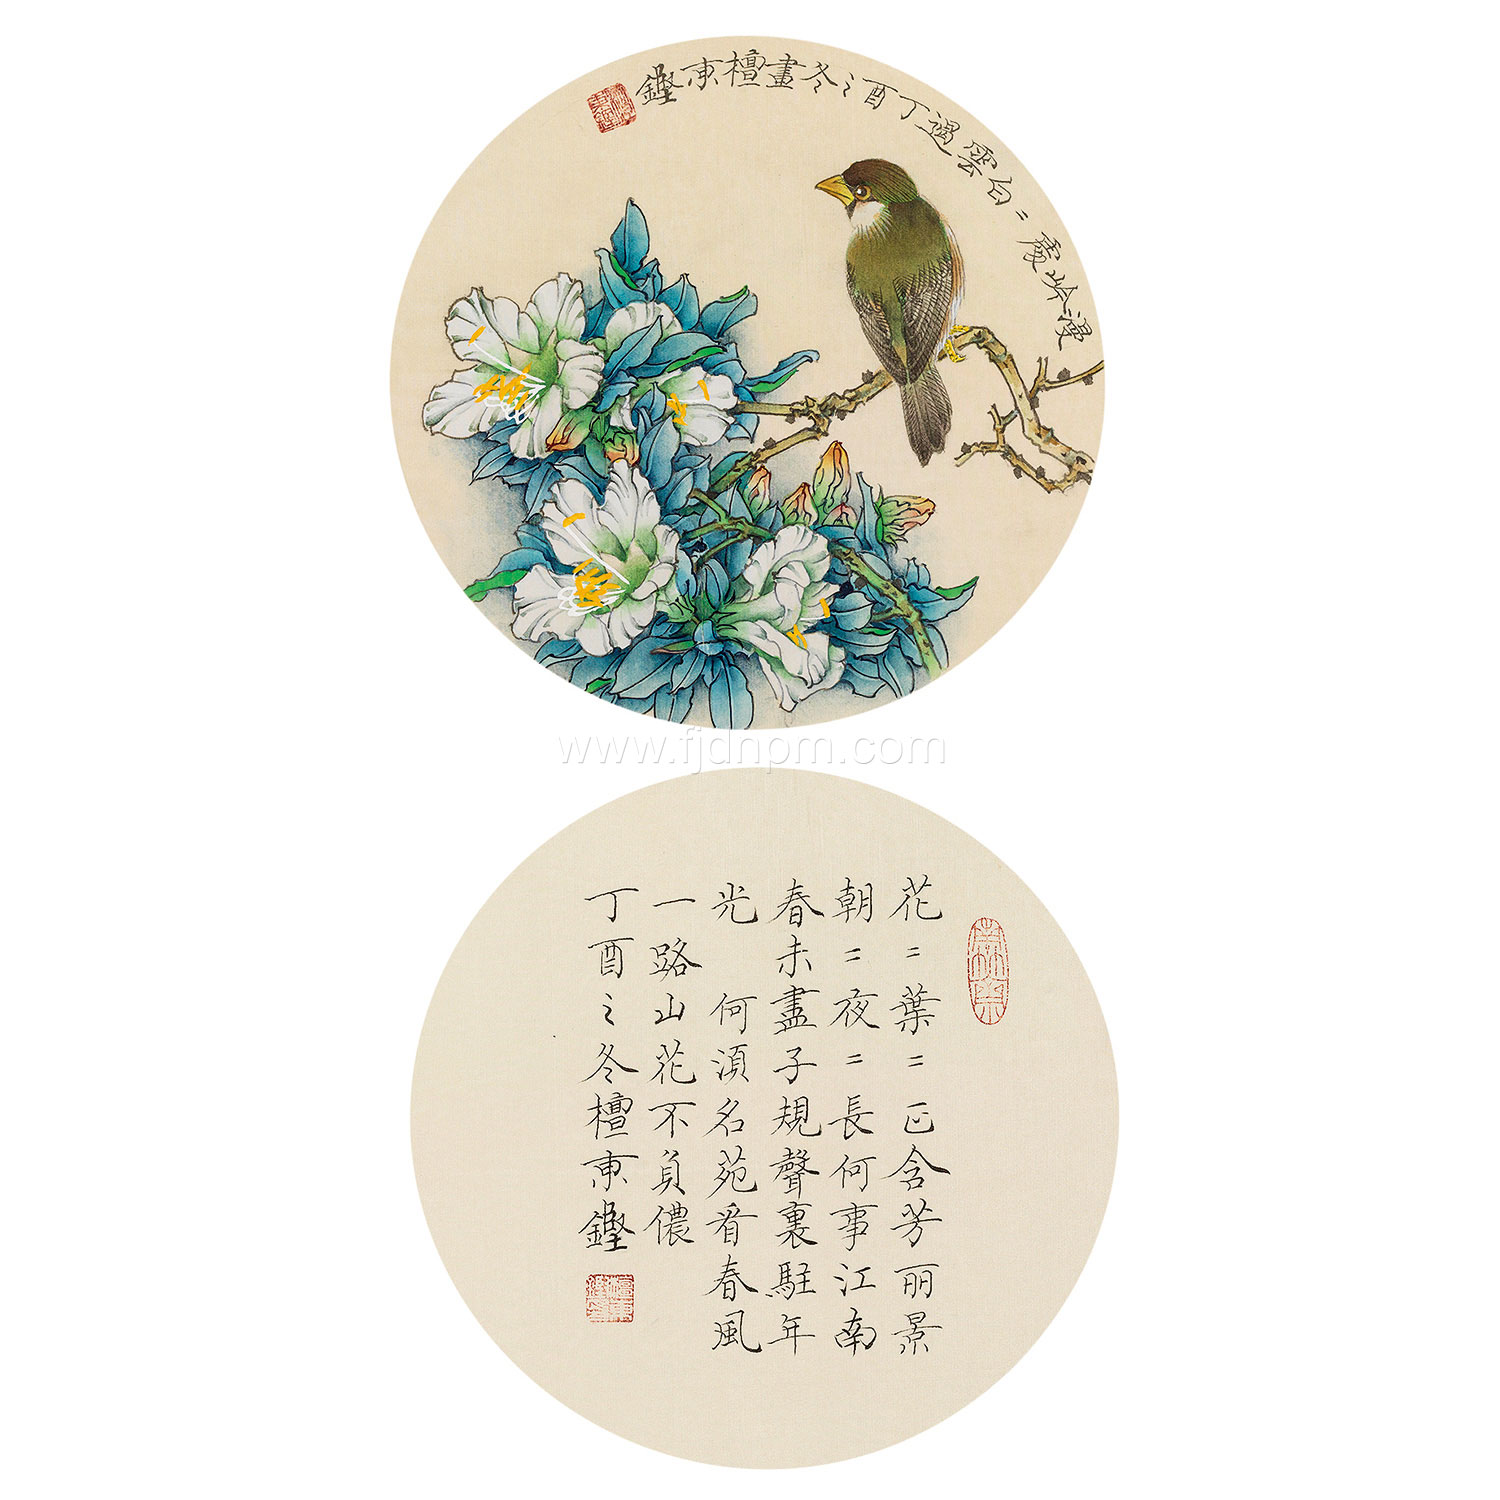 漫岭處=白雲過丁酉之冬畫檀東鏗
www.fjdhpm.com
花=葉=正含芳丽景
朝=夜=長何事江南
春未盡子規聲裏駐年
光 何須名苑看春風
一路山花不負儂
丁酉之冬檀東鏗
檀東鏗印